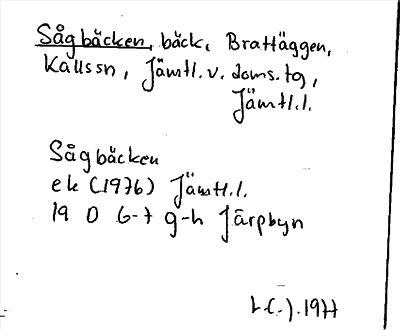 Sågbäcken, bäck, Brattäggen,
Kallssn, Jämtl.v. doms.tg,
Jämtl.l.
Sågbäcken
ek (1976) Jämtl.l.
19 D 6-7 g-h Järpbyn
1977